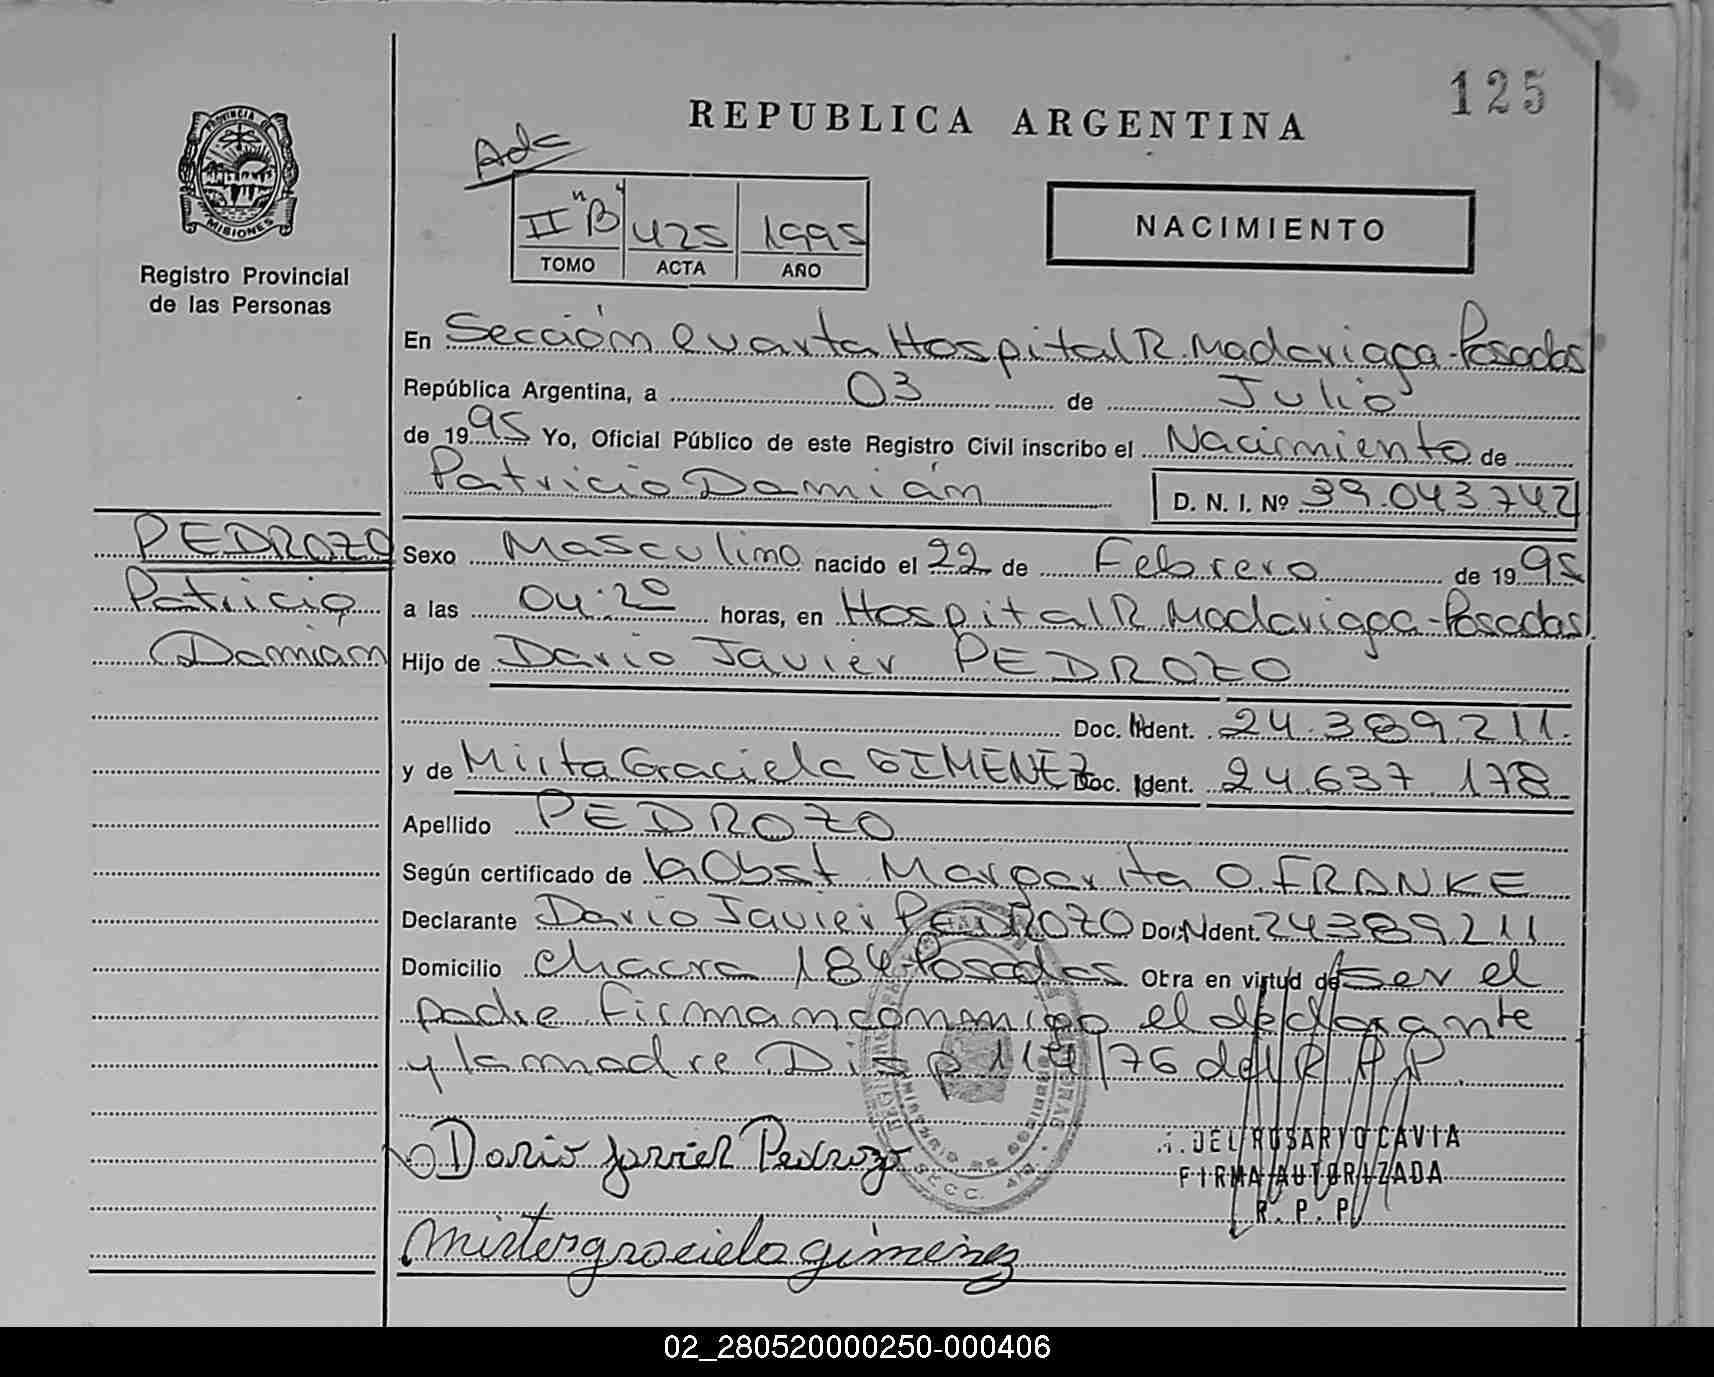 125
REPUBLICA ARGENTINA
Adc
PROVINCIA DE
MISIONES
Registro Provincial
de las Personas
II "B" 425 1995
TOMO ACTA AÑO
NACIMIENTO
En Sección Quarta Hospital R. Madariaga - Posadas
República Argentina, a 03 de Julio
de 1995 Yo, Oficial Público de este Registro Civil inscribo el Nacimiento de
Patricio Damián D. N. I. Nº 39.043.742
PEDROZO
Patricio
Damián
Sexo Masculino nacido el 22 de Febrero de 1995
a las 04:20 horas, en Hospital R. Madariaga - Posadas.
Hijo de Dario Javier PEDROZO
Doc. Ident. 24.389.211.
y de Mirta Graciela GIMENEZ Doc. Ident. 24.637.178
Apellido PEDROZO
Según certificado de la Obst. Margarita O. FRANKE
Declarante Dario Javier PEDROZO Doc. Ident. 24389211
Domicilio Chacra 184 - Posadas. Obra en virtud de ser el
padre firman conmigo el declarante
y la madre Disp 114/76 del R P P.
Dario Javier Pedrozo
DEL ROSARIO CAVIA
FIRMA AUTORIZADA
R. P. P.
Mirta graciela gimenez
02_280520000250-000406